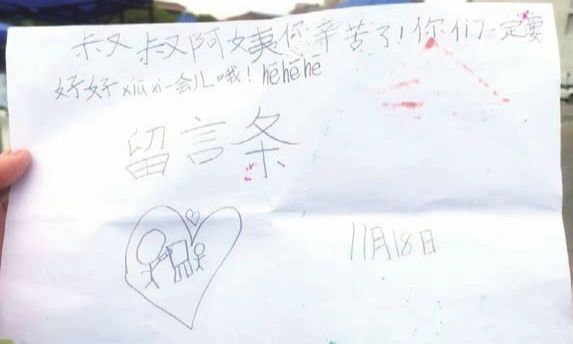 叔叔阿姨您辛苦了！你们一定要
好好xiūxi一会儿哦！hēhēhē
留言条
11月18日